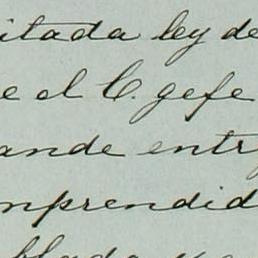 itada ley de
e el C. gefe
ande entr
mprendid